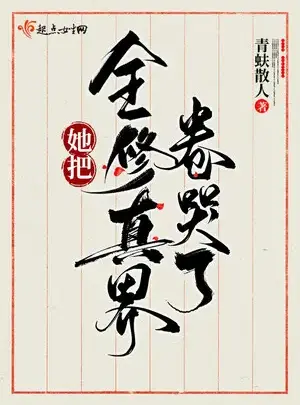 起点女生网
青蚨散人 著
她把
全修真界
卷哭了